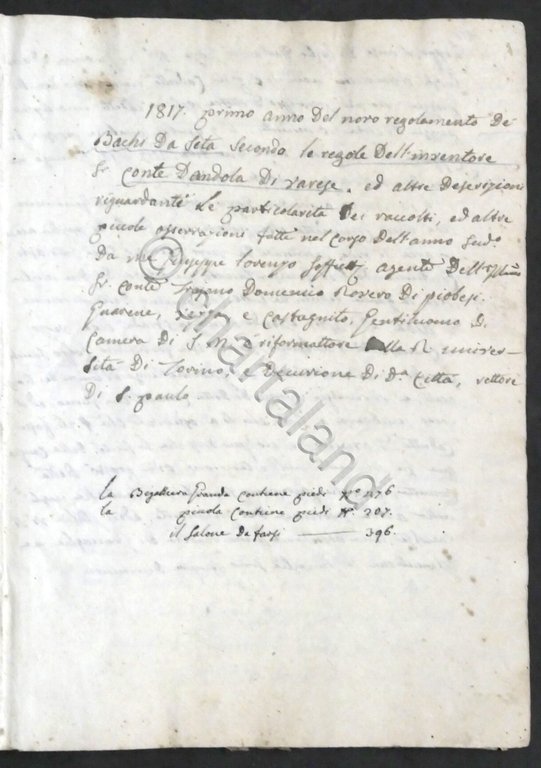 1817. primo anno Del novo regolamento De
Bachi Da Seta Secondo le regole Dell'inventore
Sr. Conte Dandola Di Varese, ed altre Descrizioni
riguardanti Le particolarità Dei raccolti, ed altre
piccole osservazioni fatte nel corso Dell'anno sudo.
Da me Lorenzo agente Dell' Illmo
Sr. Conte Trajano Domenico Rovero Di piobesi
Guarene, e Castagnito, Gentiluomo Di
Camera Di S. M. riformattore alla R. univer-
sità Di Torino, Decurione Di Da. Città, rettore
Di S. paulo
la Bigattiera Granda contiene piedi No 476
la picola contiene piedi No. 207.
il Salone Da farsi —— 396.
© Chartaland